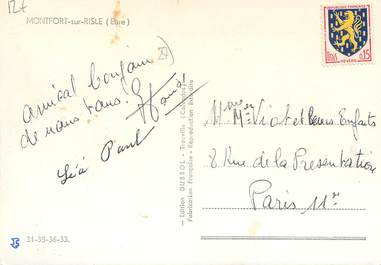 12€
MONTFORT-sur-RISLE (Eure)
27
Amical bonjour
de nous tous.
Léa Paul
— Edition DUSSOL - Trouville (Calvados) —
Fabrication Française - Reproduction Interdite
REPUBLIQUE FRANÇAISE
0,15
NEVERS
Mr Me Viot et leurs Enfants
8 Rue de la Présentation
Paris 11e
31-35-36-33.